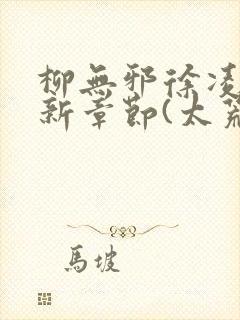 柳無邪徐凌
新章節(太荒
馬坡